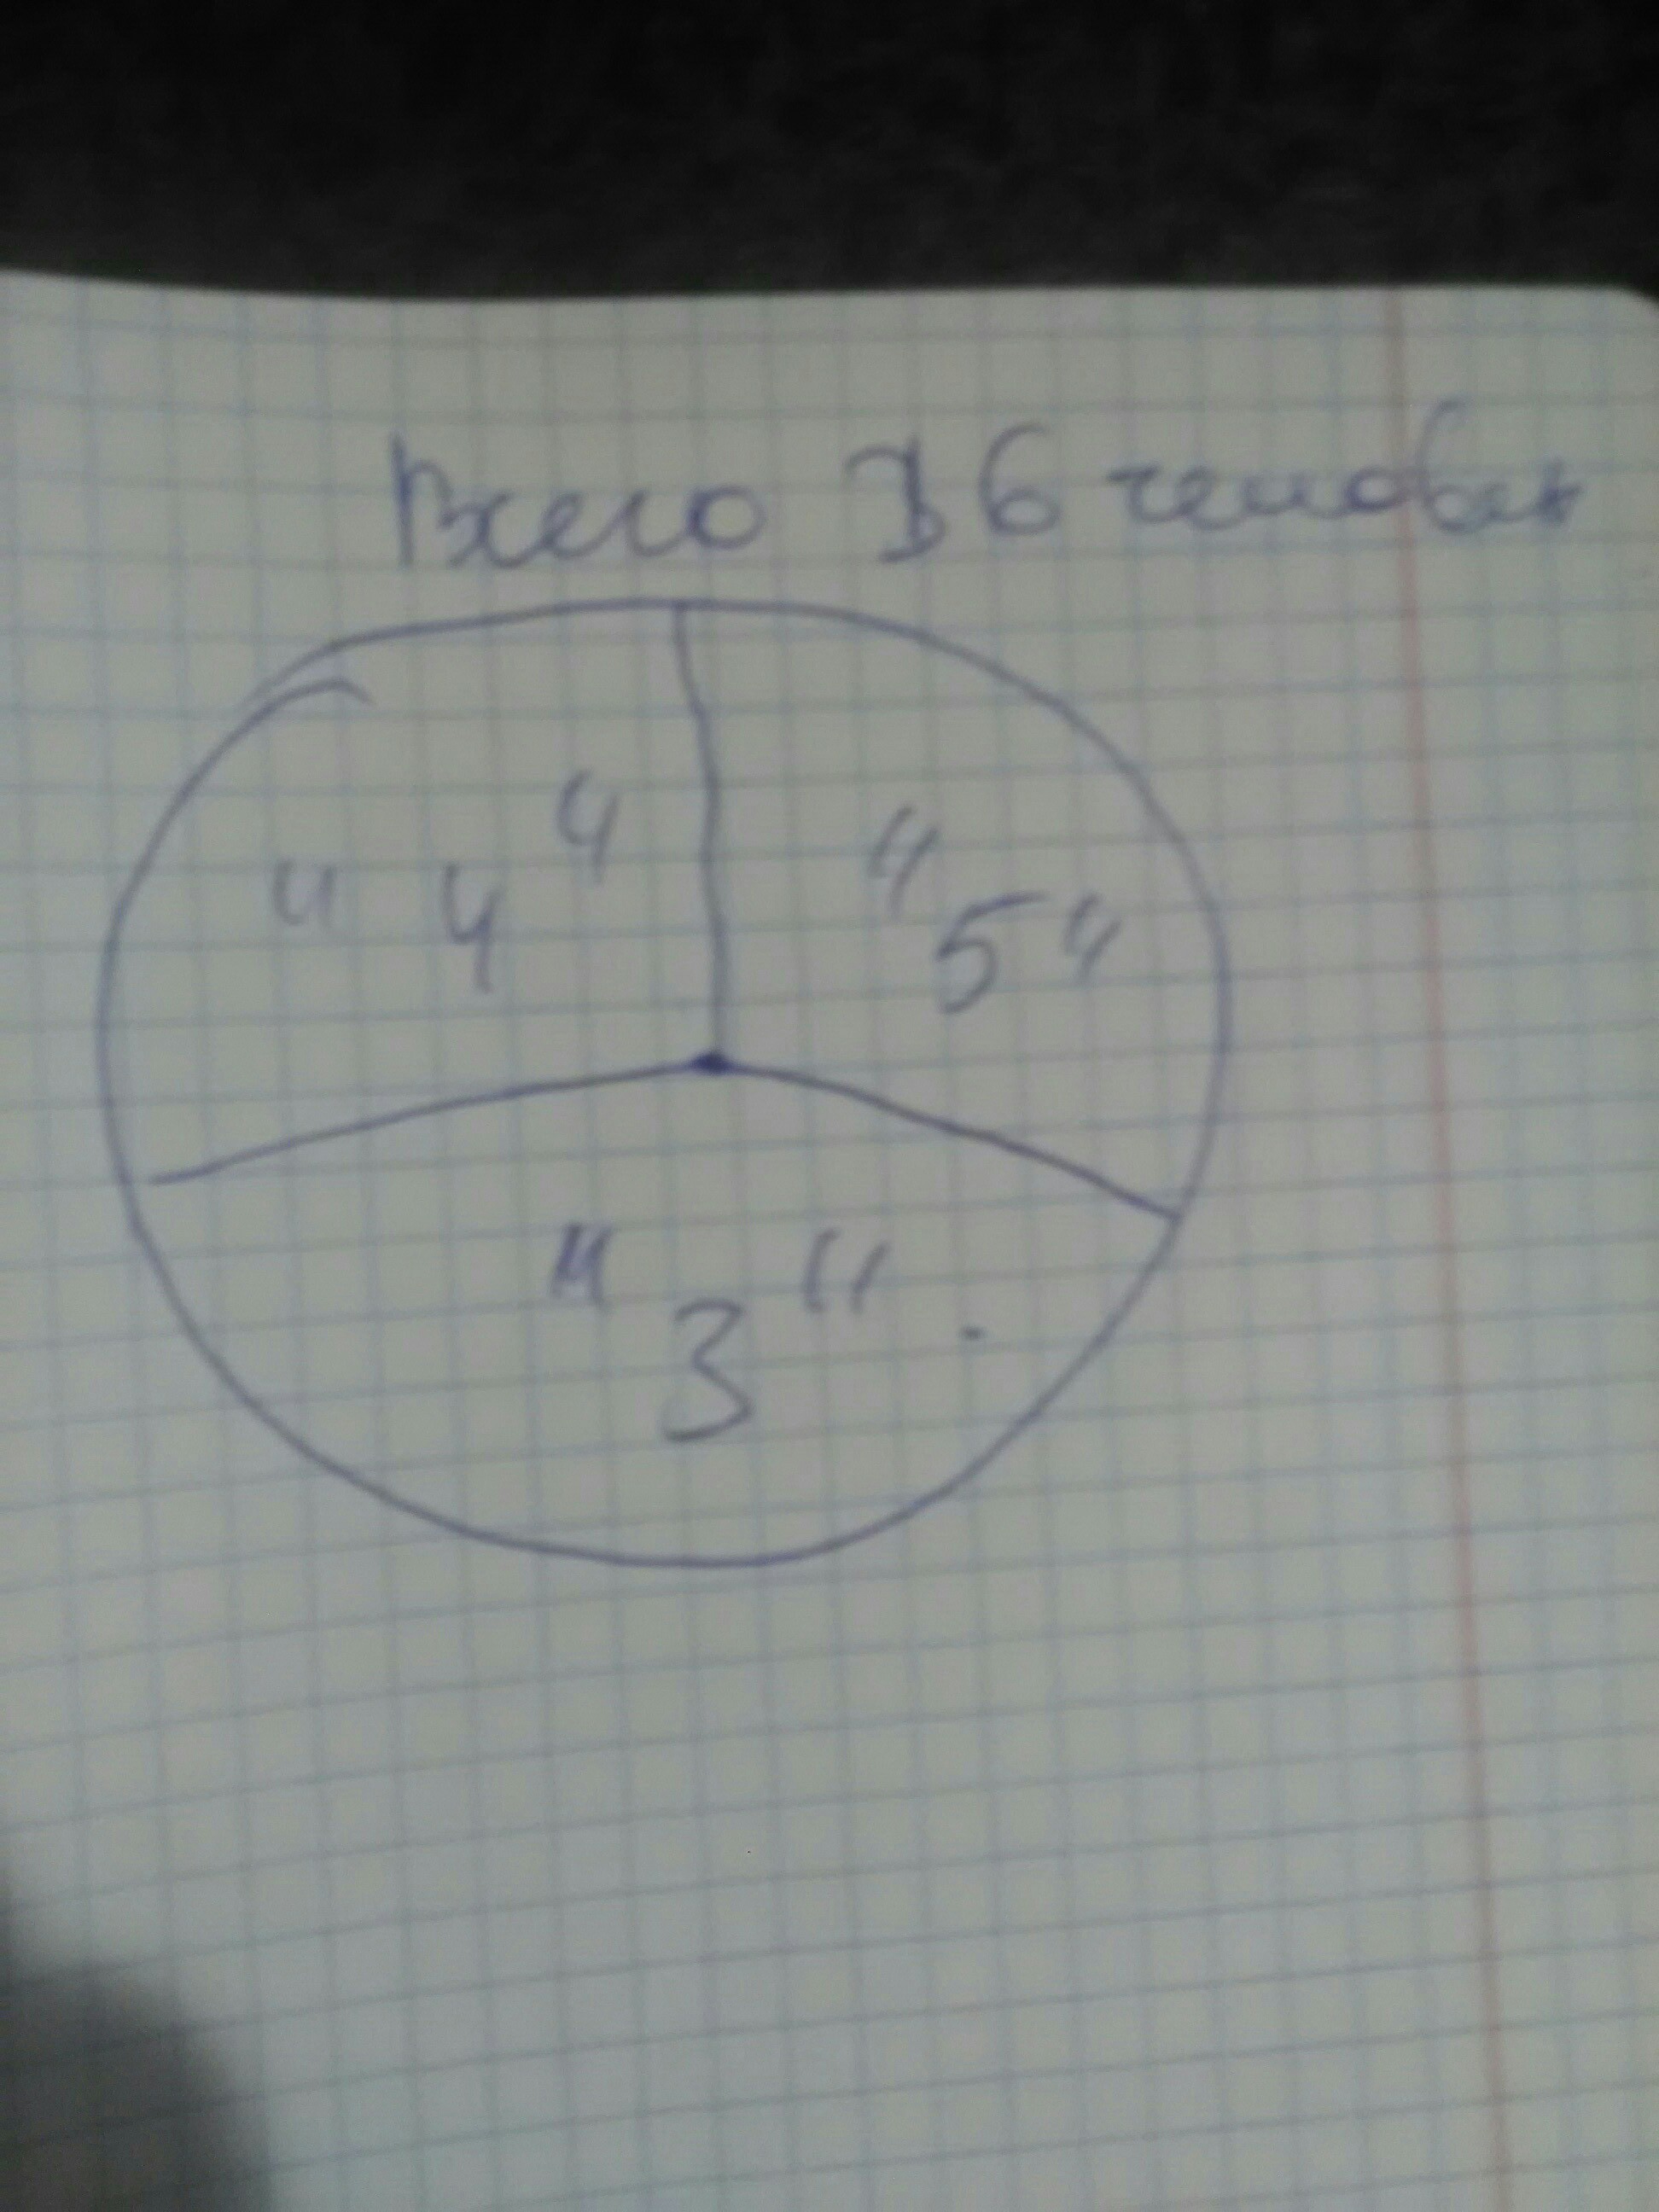 Всего 36 человек
"4" "5"
"3"